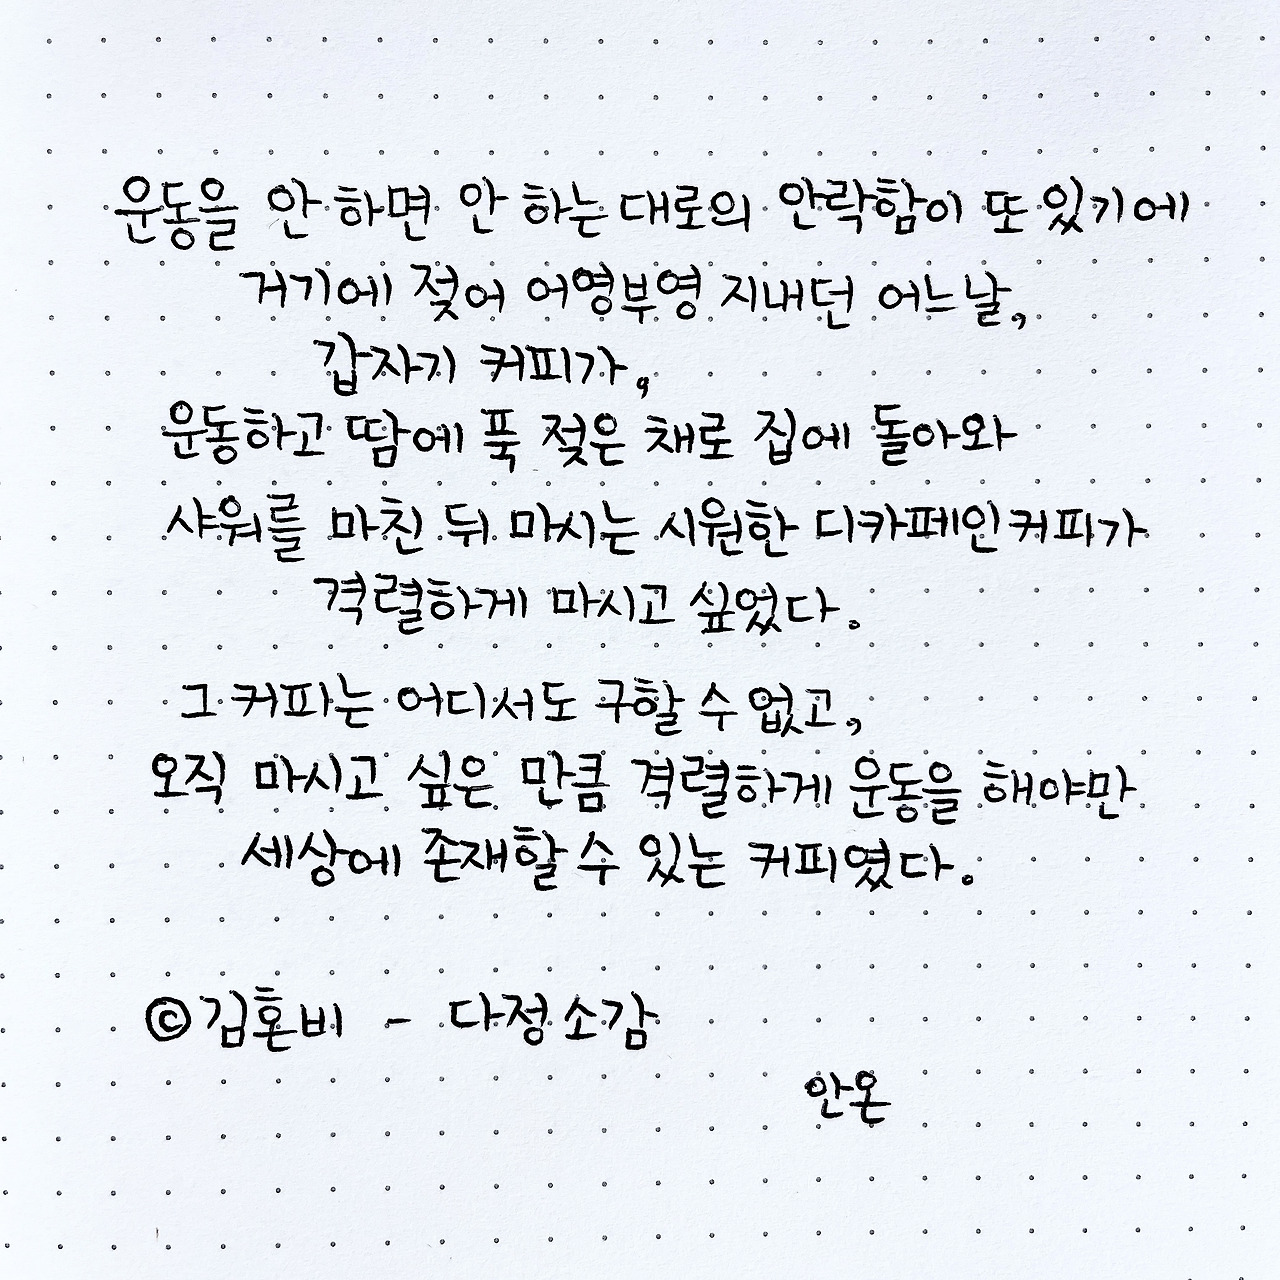 운동을 안 하면 안 하는 대로의 안락함이 또 있기에
거기에 젖어 어영부영 지내던 어느날,
갑자기 커피가,
운동하고 땀에 푹 젖은 채로 집에 돌아와
샤워를 마친 뒤 마시는 시원한 디카페인커피가
격렬하게 마시고 싶었다.
그 커피는 어디서도 구할 수 없고,
오직 마시고 싶은 만큼 격렬하게 운동을 해야만
세상에 존재할 수 있는 커피였다.
©김혼비 - 다정소감
안온